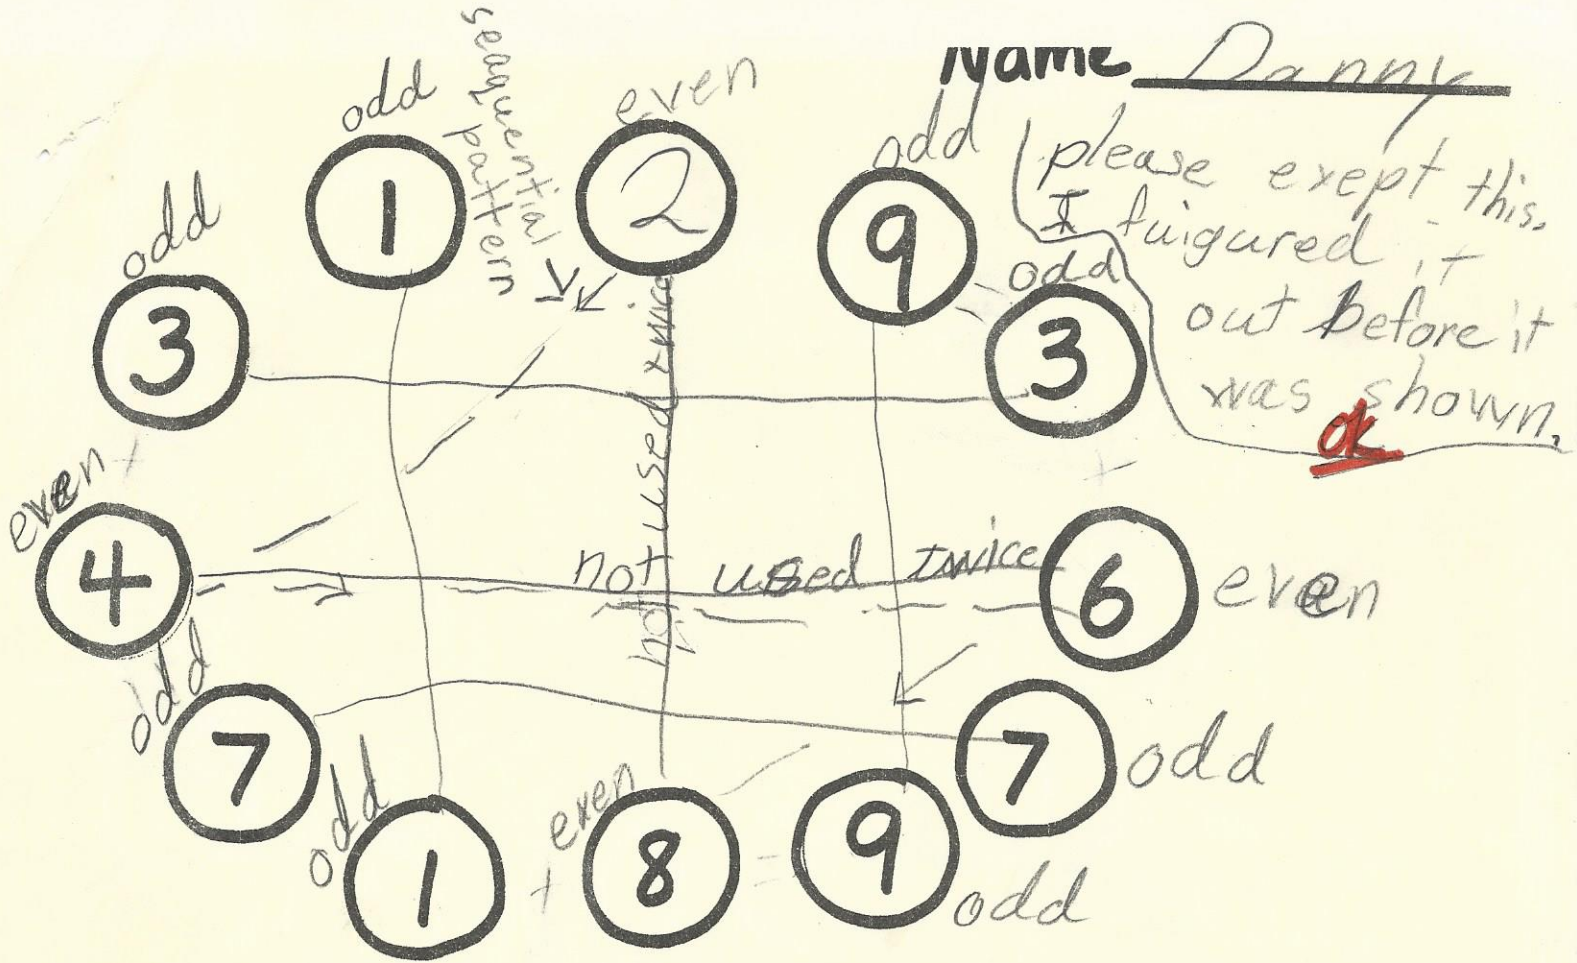 Name Danny
please exept this.
I fuigured it
out before it
was shown.
ok
seaquential
pattern
odd
1
even
2
odd
9
odd
3
odd
3
even
4
not used twice
not used twice
6
even
odd
7
7
odd
odd
1
+
even
8
=
9
odd